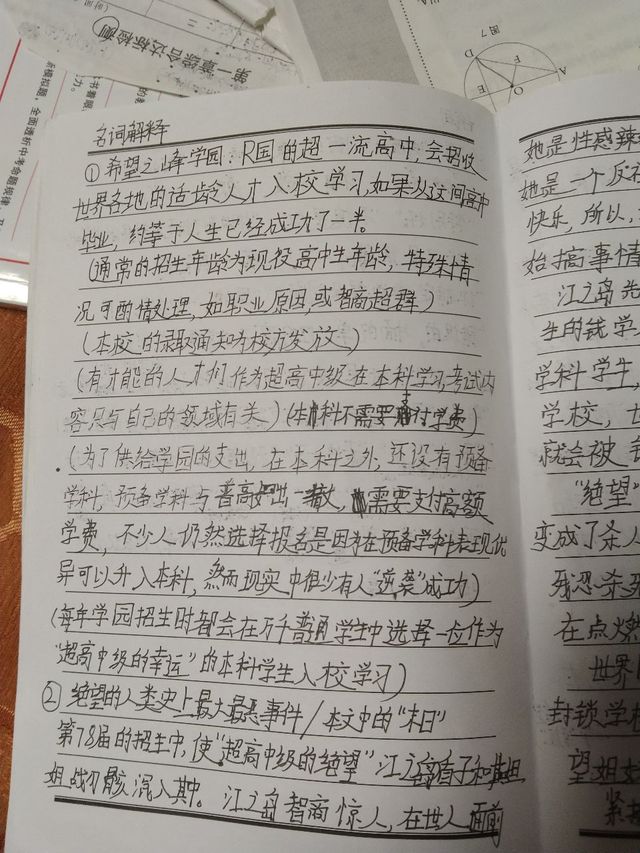 第一章综合达标检测
图7
D
F
E
O
A
名词解释
①希望之峰学园：R国的超一流高中，会招收
世界各地的适龄人才入校学习，如果从这间高中
毕业，约等于人生已经成功了一半。
（通常的招生年龄为现役高中生年龄，特殊情
况可酌情处理，如职业原因，或智商超群）
（本校的录取通知为校方发放）
（有才能的人才们作为超高中级在本科学习，考试内
容只与自己的领域有关）（本科不需要付学费）
（为了供给学园的支出，在本科之外，还设有预备
学科，预备学科与普高如出一辙，需要支付高额
学费，不少人仍然选择报名是因为在预备学科表现优
异可以升入本科，然而现实中很少有人“逆袭”成功）
（每年学园招生时都会在万千普通学生中选择一位作为
“超高中级的幸运”的本科学生入校学习）
②绝望的人类史上最大最恶事件/本文中的“末日”
第78届的招生中，使“超高中级的绝望”江之岛盾子和其姐
姐战刃骸混入其中。江之岛智商惊人，在世人面前
她是性感辣
她是一个反
快乐，所以，
始搞事情
江之岛先
生的统学
学科学生
学校，
就会被
“绝望”
变成了杀人
残忍杀死
在点燃
世界
封锁学校
望姐妹
紧